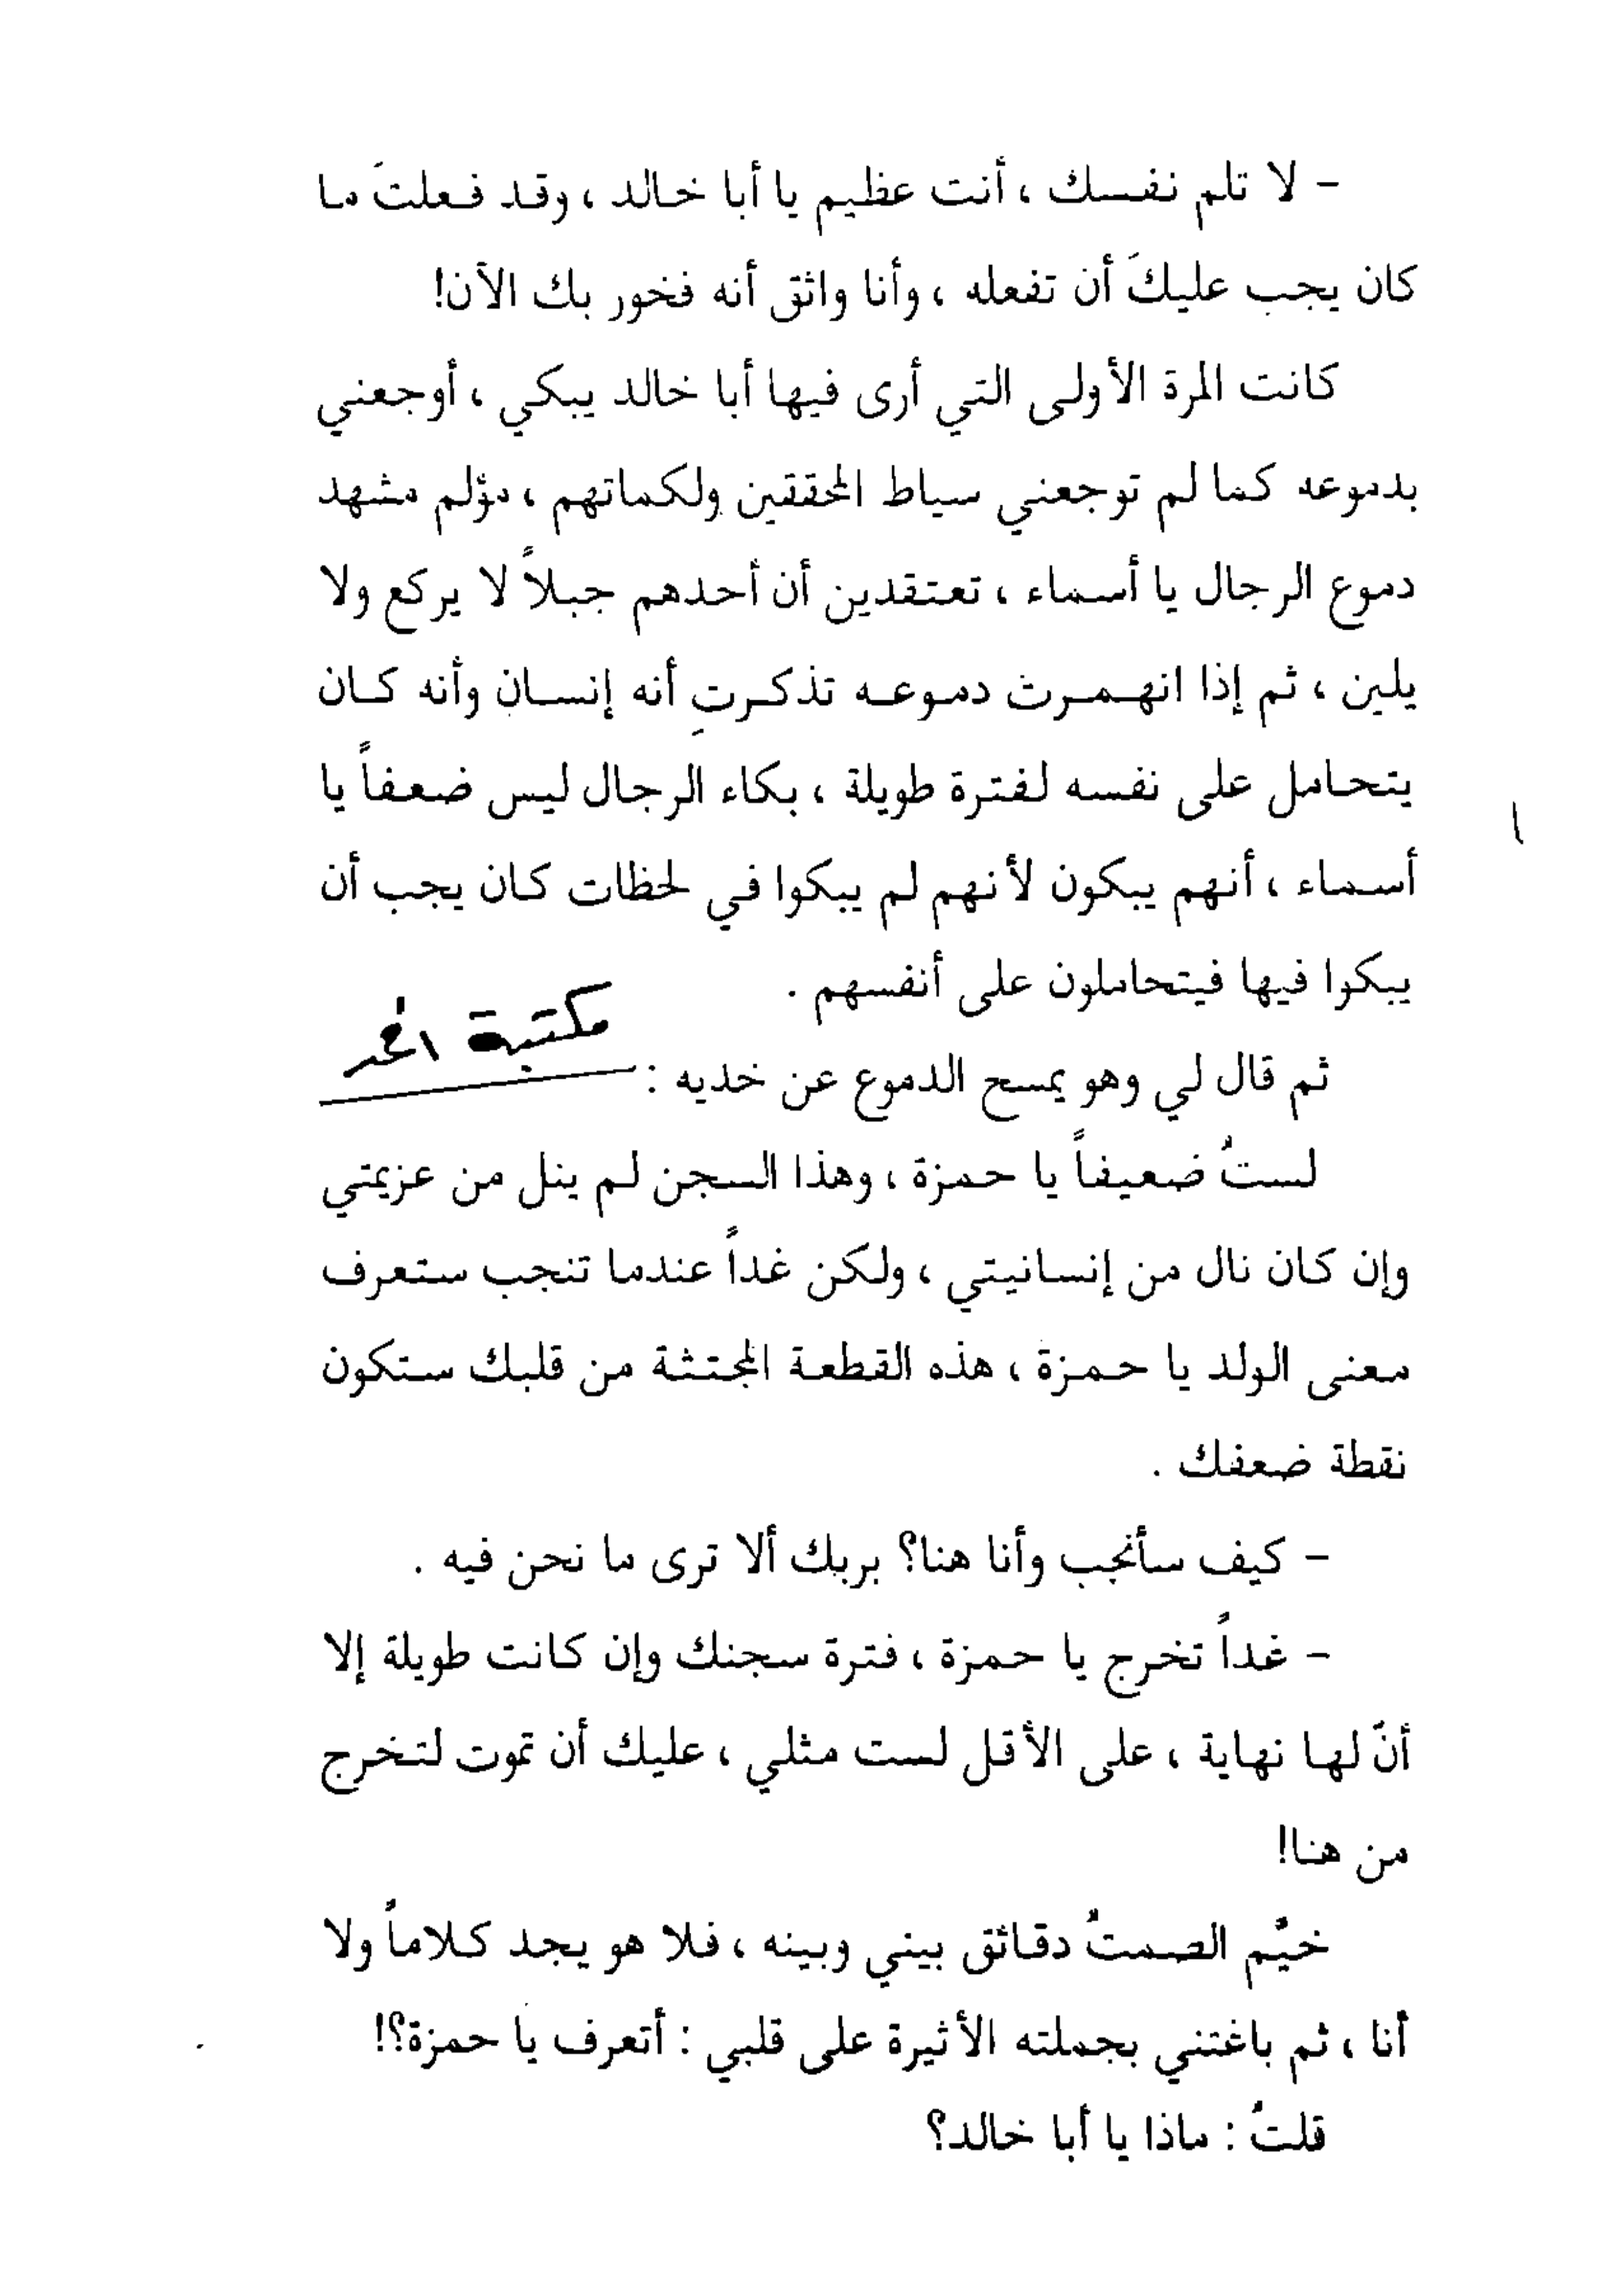 - لا تلم نفسك ، أنت عظيم يا أبا خالد ، وقد فعلتَ ما
كان يجب عليكَ أن تفعله ، وأنا واثق أنه فخور بك الآن!
كانت المرة الأولى التي أرى فيها أبا خالد يبكي ، أوجعني
بدموعه كما لم توجعني سياط المحققين ولكماتهم ، مؤلم مشهد
دموع الرجال يا أسماء ، تعتقدين أن أحدهم جبلاً لا يركع ولا
يلين ، ثم إذا انهمرت دموعه تذكرتِ أنه إنسان وأنه كان
يتحامل على نفسه لفترة طويلة ، بكاء الرجال ليس ضعفاً يا
أسماء ، أنهم يبكون لأنهم لم يبكوا في لحظات كان يجب أن
يبكوا فيها فيتحاملون على أنفسهم .
مكتبة
ثم قال لي وهو يمسح الدموع عن خديه :
لستُ ضعيفاً يا حمزة ، وهذا السجن لم ينل من عزيمتي
وإن كان نال من إنسانيتي ، ولكن غداً عندما تنجب ستعرف
معنى الولد يا حمزة ، هذه القطعة المجتثة من قلبك ستكون
نقطة ضعفك .
- كيف سأنجب وأنا هنا؟ بربك ألا ترى ما نحن فيه .
- غداً تخرج يا حمزة ، فترة سجنك وإن كانت طويلة إلا
أنّ لها نهاية ، على الأقل لست مثلي ، عليك أن تموت لتخرج
من هنا!
خيّم الصمتُ دقائق بيني وبينه ، فلا هو يجد كلاماً ولا
أنا ، ثم باغتني بجملته الأثيرة على قلبي : أتعرف يا حمزة؟!
قلتُ : ماذا يا أبا خالد؟